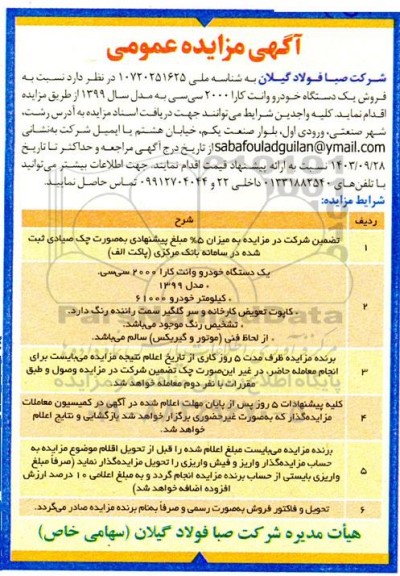 آگهی مزایده عمومی
شرکت صبا فولاد گیلان به شناسه ملی ۱۰۷۲۰۲۵۱۶۲۵ در نظر دارد نسبت به
فروش یک دستگاه خودرو وانت کارا ۲۰۰۰ سی‌سی به مدل سال ۱۳۹۹ از طریق مزایده
اقدام نماید. کلیه واجدین شرایط می‌توانند جهت دریافت اسناد مزایده به آدرس رشت،
شهر صنعتی، ورودی اول، بلوار صنعت یکم، خیابان هشتم یا ایمیل شرکت به‌نشانی
sabafouladguilan@ymail.com از تاریخ درج آگهی مراجعه و حداکثر تا تاریخ
۱۴۰۳/۰۹/۲۸ نسبت به ارائه پیشنهاد قیمت اقدام نمایند. جهت اطلاعات بیشتر می‌توانید
با تلفن‌های ۰۱۳۳۱۸۸۲۵۴۰ داخلی ۲۲ و ۰۹۹۱۲۷۰۴۰۴۴ تماس حاصل نمایید.
شرایط مزایده:
ردیف شرح
۱ تضمین شرکت در مزایده به میزان ۵% مبلغ پیشنهادی به‌صورت چک صیادی ثبت
شده در سامانه بانک مرکزی (پاکت الف)
۲ یک دستگاه خودرو وانت کارا ۲۰۰۰ سی‌سی.
، مدل ۱۳۹۹
، کیلومتر خودرو ۶۱۰۰۰
، کاپوت تعویض کارخانه و سر گلگیر سمت راننده رنگ دارد.
، تشخیص رنگ موجود می‌باشد.
، از لحاظ فنی (موتور و گیربکس) سالم می‌باشد.
۳ برنده مزایده ظرف مدت ۵ روز کاری از تاریخ اعلام نتیجه مزایده می‌بایست برای
انجام معامله حاضر، در غیر این‌صورت چک تضمین شرکت در مزایده وصول و طبق
مقررات با نفر دوم معامله خواهد شد.
۴ کلیه پیشنهادات ۵ روز پس از پایان مهلت اعلام شده در آگهی در کمیسیون معاملات
مزایده‌گذار که به‌صورت غیرحضوری برگزار خواهد شد بازگشایی و نتایج اعلام
خواهد شد.
۵ برنده مزایده می‌بایست مبلغ اعلام شده را قبل از تحویل اقلام موضوع مزایده به
حساب مزایده‌گذار واریز و فیش واریزی را تحویل مزایده‌گذار نماید (صرفاً مبلغ
واریزی بایستی از حساب برنده مزایده انجام گردد و به مبلغ اعلامی ۱۰ درصد ارزش
افزوده اضافه خواهد شد)
۶ تحویل و فاکتور فروش به‌صورت رسمی و صرفاً به‌نام برنده مزایده صادر می‌گردد.
هیأت مدیره شرکت صبا فولاد گیلان (سهامی خاص)